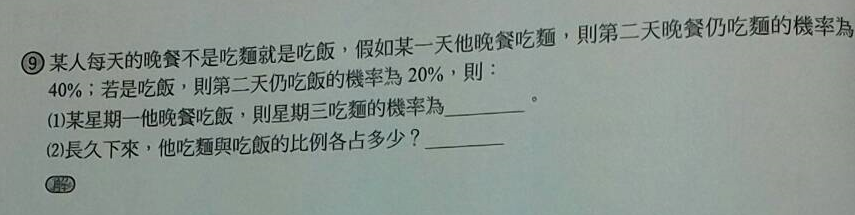 ⑨某人每天的晚餐不是吃麵就是吃飯，假如某一天他晚餐吃麵，則第二天晚餐仍吃麵的機率為
40%；若是吃飯，則第二天仍吃飯的機率為 20%，則：
⑴某星期一他晚餐吃飯，則星期三吃麵的機率為________。
⑵長久下來，他吃麵與吃飯的比例各占多少？________
解